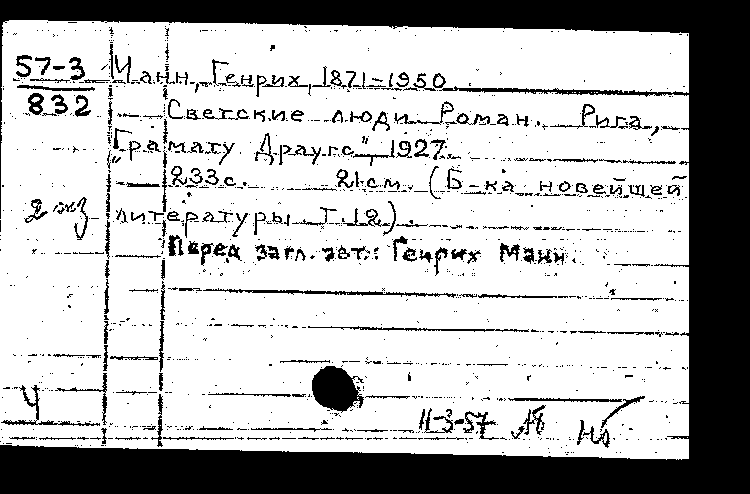 57-3 Манн, Генрих, 1871-1950.
832 Светские люди. Роман. Рига,
"Грамату Драугс", 1927.
233с. 21см. (Б-ка новейшей
2 экз литературы. Т.12).
Перед загл. авт.: Генрих Манн.
Ч
11-3-57